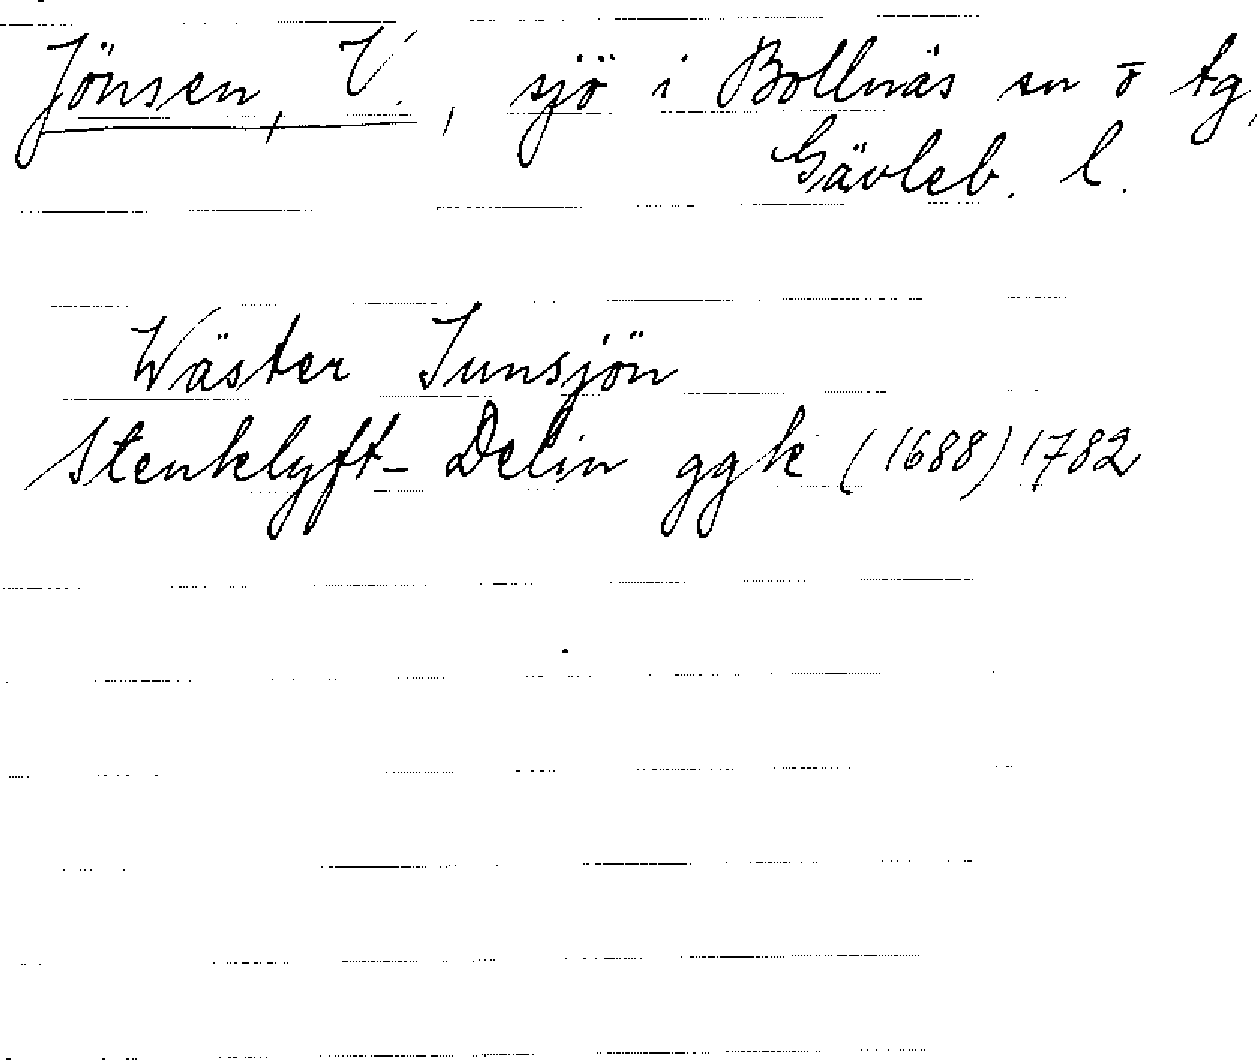 Jönsen, V., sjö i Bollnäs sn o tg,
Gävleb. l.
Wäster Junsjön
Stenklyft- Delin ggk (1688) 1782